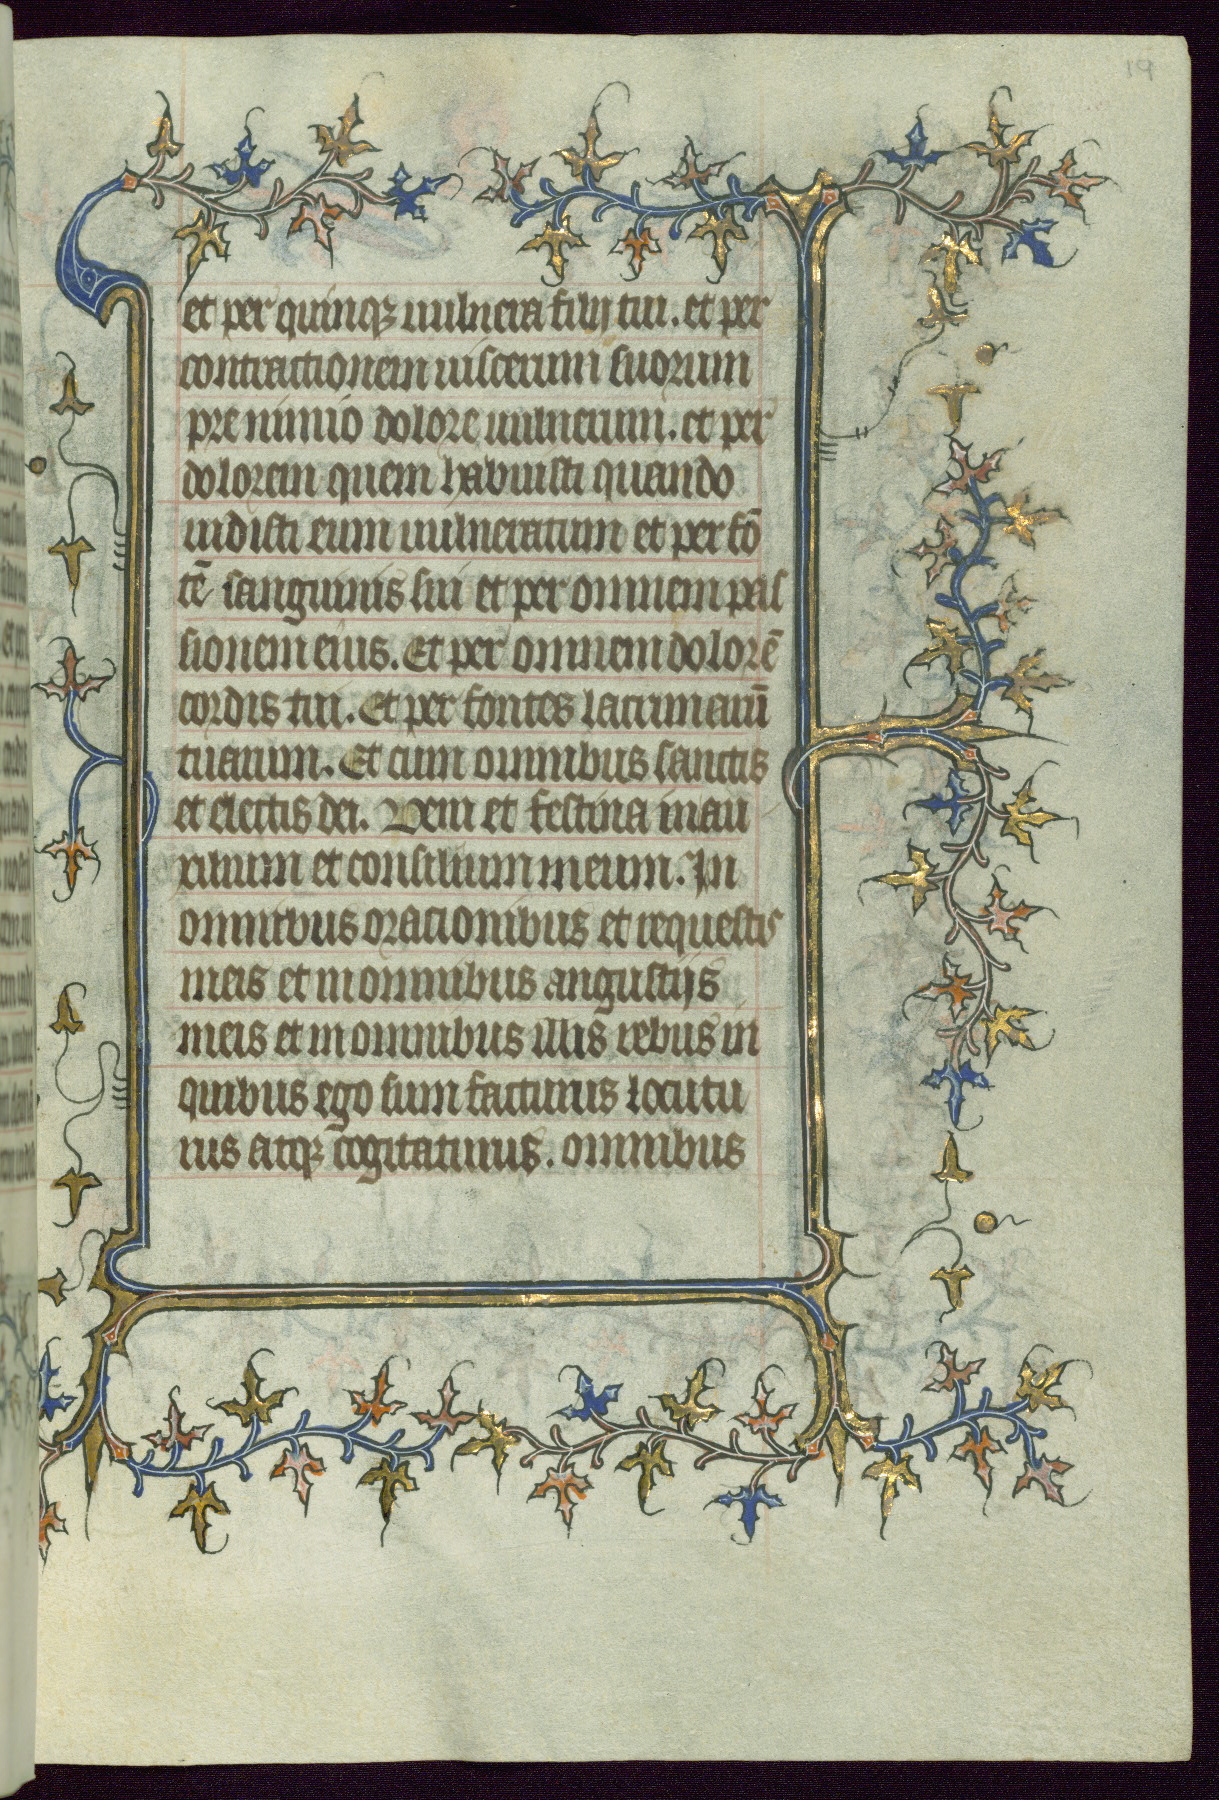 19
et per quinqꝫ uulnera filij tui. et per
contractionem uiscerum suorum
pre nimio dolore uulnerum. et per
dolorem quem habuisti quando
uidisti eum uulneratum et per fō
tē sanguinis sui et per omnem pas
sionem eius. Et per omnem dolorē
cordis tui. Et per fontes lacrimaruū
tuarum. Et cum omnibus sanctis
et electis dei. Veni et festina in au
xilium et consilium meum. In
omnibus oracionibus et requestis
meis et in omnibus angustijs
meis et in omnibus illis rebus in
quibus ego sum facturus locutu
rus atqꝫ cogitaturus. omnibus